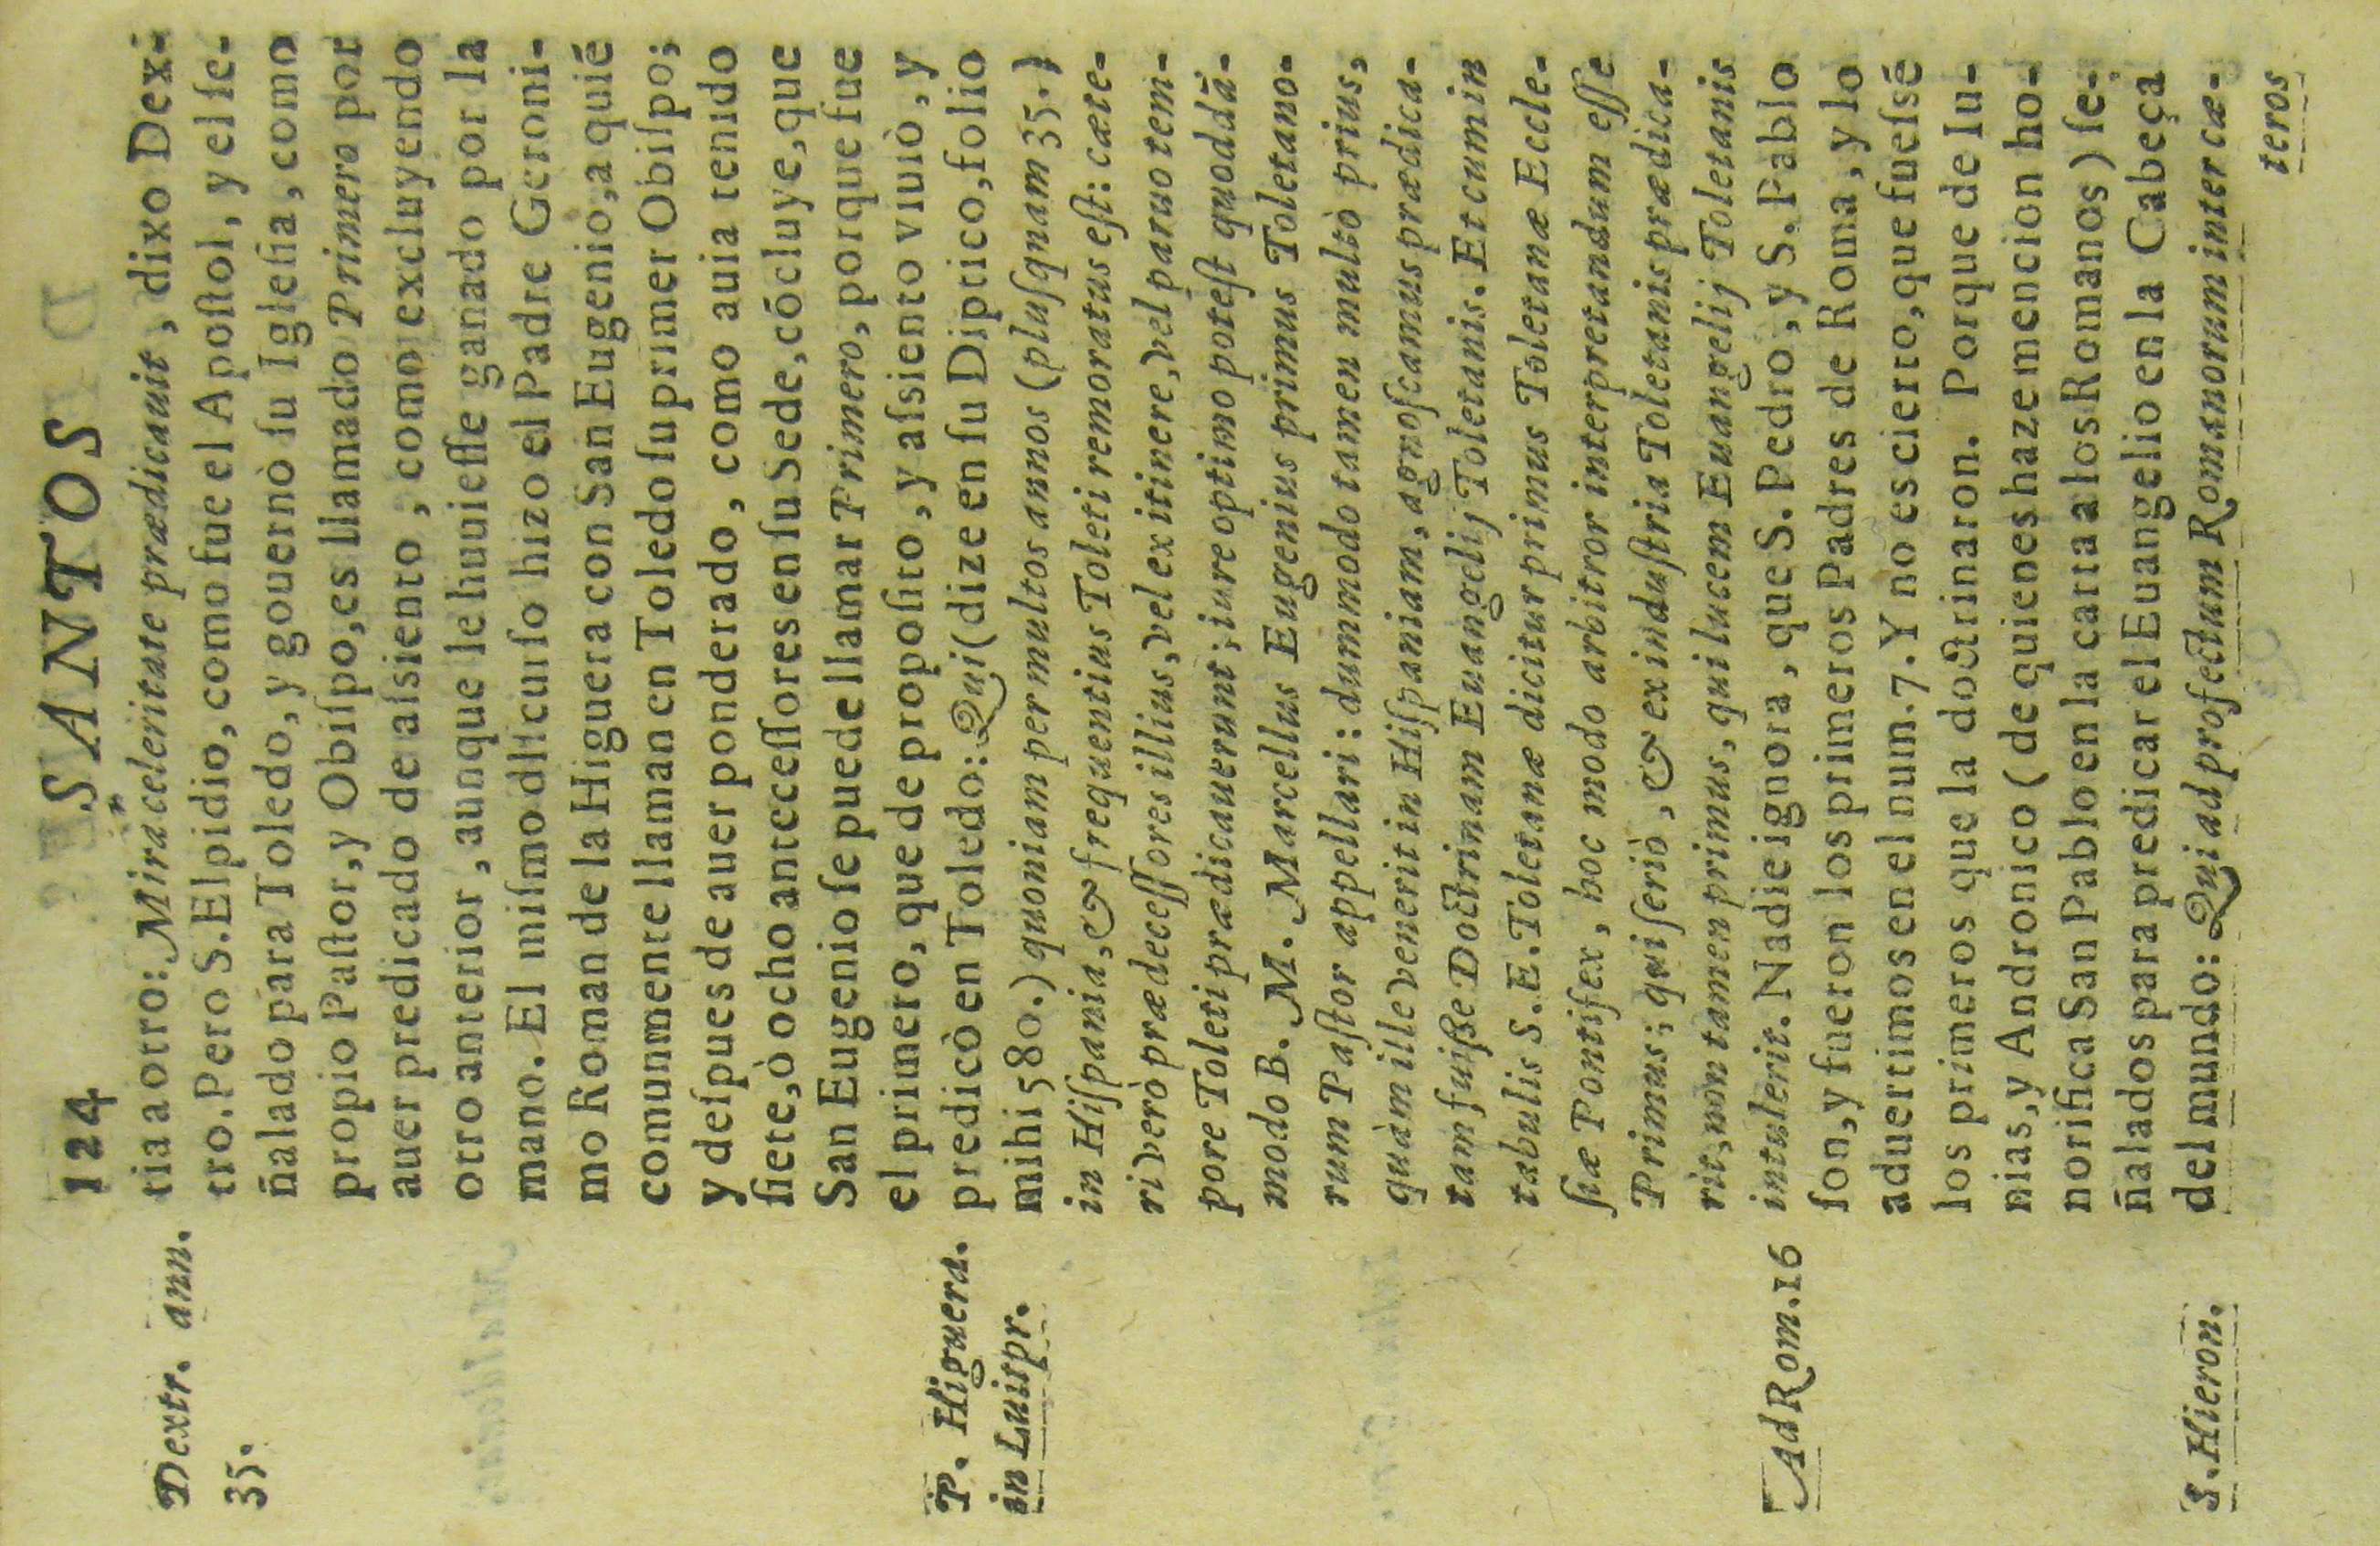 124 SANTOS
Dextr. ann.
35.
tia a otro: Mira celeritate prædicauit, dixo Dex-
tro. Pero S. Elpidio, como fue el Apoſtol, y el ſe-
ñalado para Toledo, y gouernò ſu Igleſia, como
propio Paſtor, y Obiſpo, es llamado Primero por
auer predicado de aſsiento, como excluyendo
otro anterior, aunque le huuieſſe ganado por la
mano. El miſmo diſcurſo hizo el Padre Geroni-
mo Roman de la Higuera con San Eugenio, a quiẽ
comunmente llaman en Toledo ſu primer Obiſpo;
y deſpues de auer ponderado, como auia tenido
ſiete, ò ocho anteceſſores en ſu Sede, cõcluye, que
San Eugenio ſe puede llamar Primero, porque fue
el primero, que de propoſito, y aſsiento viuiò, y
P. Higuera.
in Luitpr.
predicò en Toledo: Qui (dize en ſu Diptico, folio
mihi 580.) quoniam per multos annos (pluſquam 35.)
in Hiſpania, & frequentius Toleti remoratus eſt: cæte-
ri verò prædeceſſores illius, vel ex itinere, vel paruo tem-
pore Toleti prædicauerunt; iure optimo poteſt quoddã-
modo B. M. Marcellus Eugenius primus Toletano-
rum Paſtor appellari: dummodo tamen multò prius,
quàm ille venerit in Hiſpaniam, agnoſcamus prædica-
tam fuiſſe Doctrinam Euangelij Toletanis. Et cum in
tabulis S. E. Toletanæ dicitur primus Toletanæ Eccle-
ſiæ Pontifex, hoc modo arbitror interpretandum eſſe
Primus; qui ſeriò, & ex induſtria Toletanis prædica-
rit, non tamen primus, qui lucem Euangelij Toletanis
Ad Rom. 16
intulerit. Nadie ignora, que S. Pedro, y S. Pablo
ſon, y fueron los primeros Padres de Roma, y lo
aduertimos en el num. 7. Y no es cierto, que fueſsẽ
los primeros que la doctrinaron. Porque de Iu-
nias, y Andronico (de quienes haze mencion ho-
norifica San Pablo en la carta a los Romanos) ſe-
ñalados para predicar el Euangelio en la Cabeça
S. Hieron.
del mundo: Qui ad profectum Romanorum inter cæ-
teros